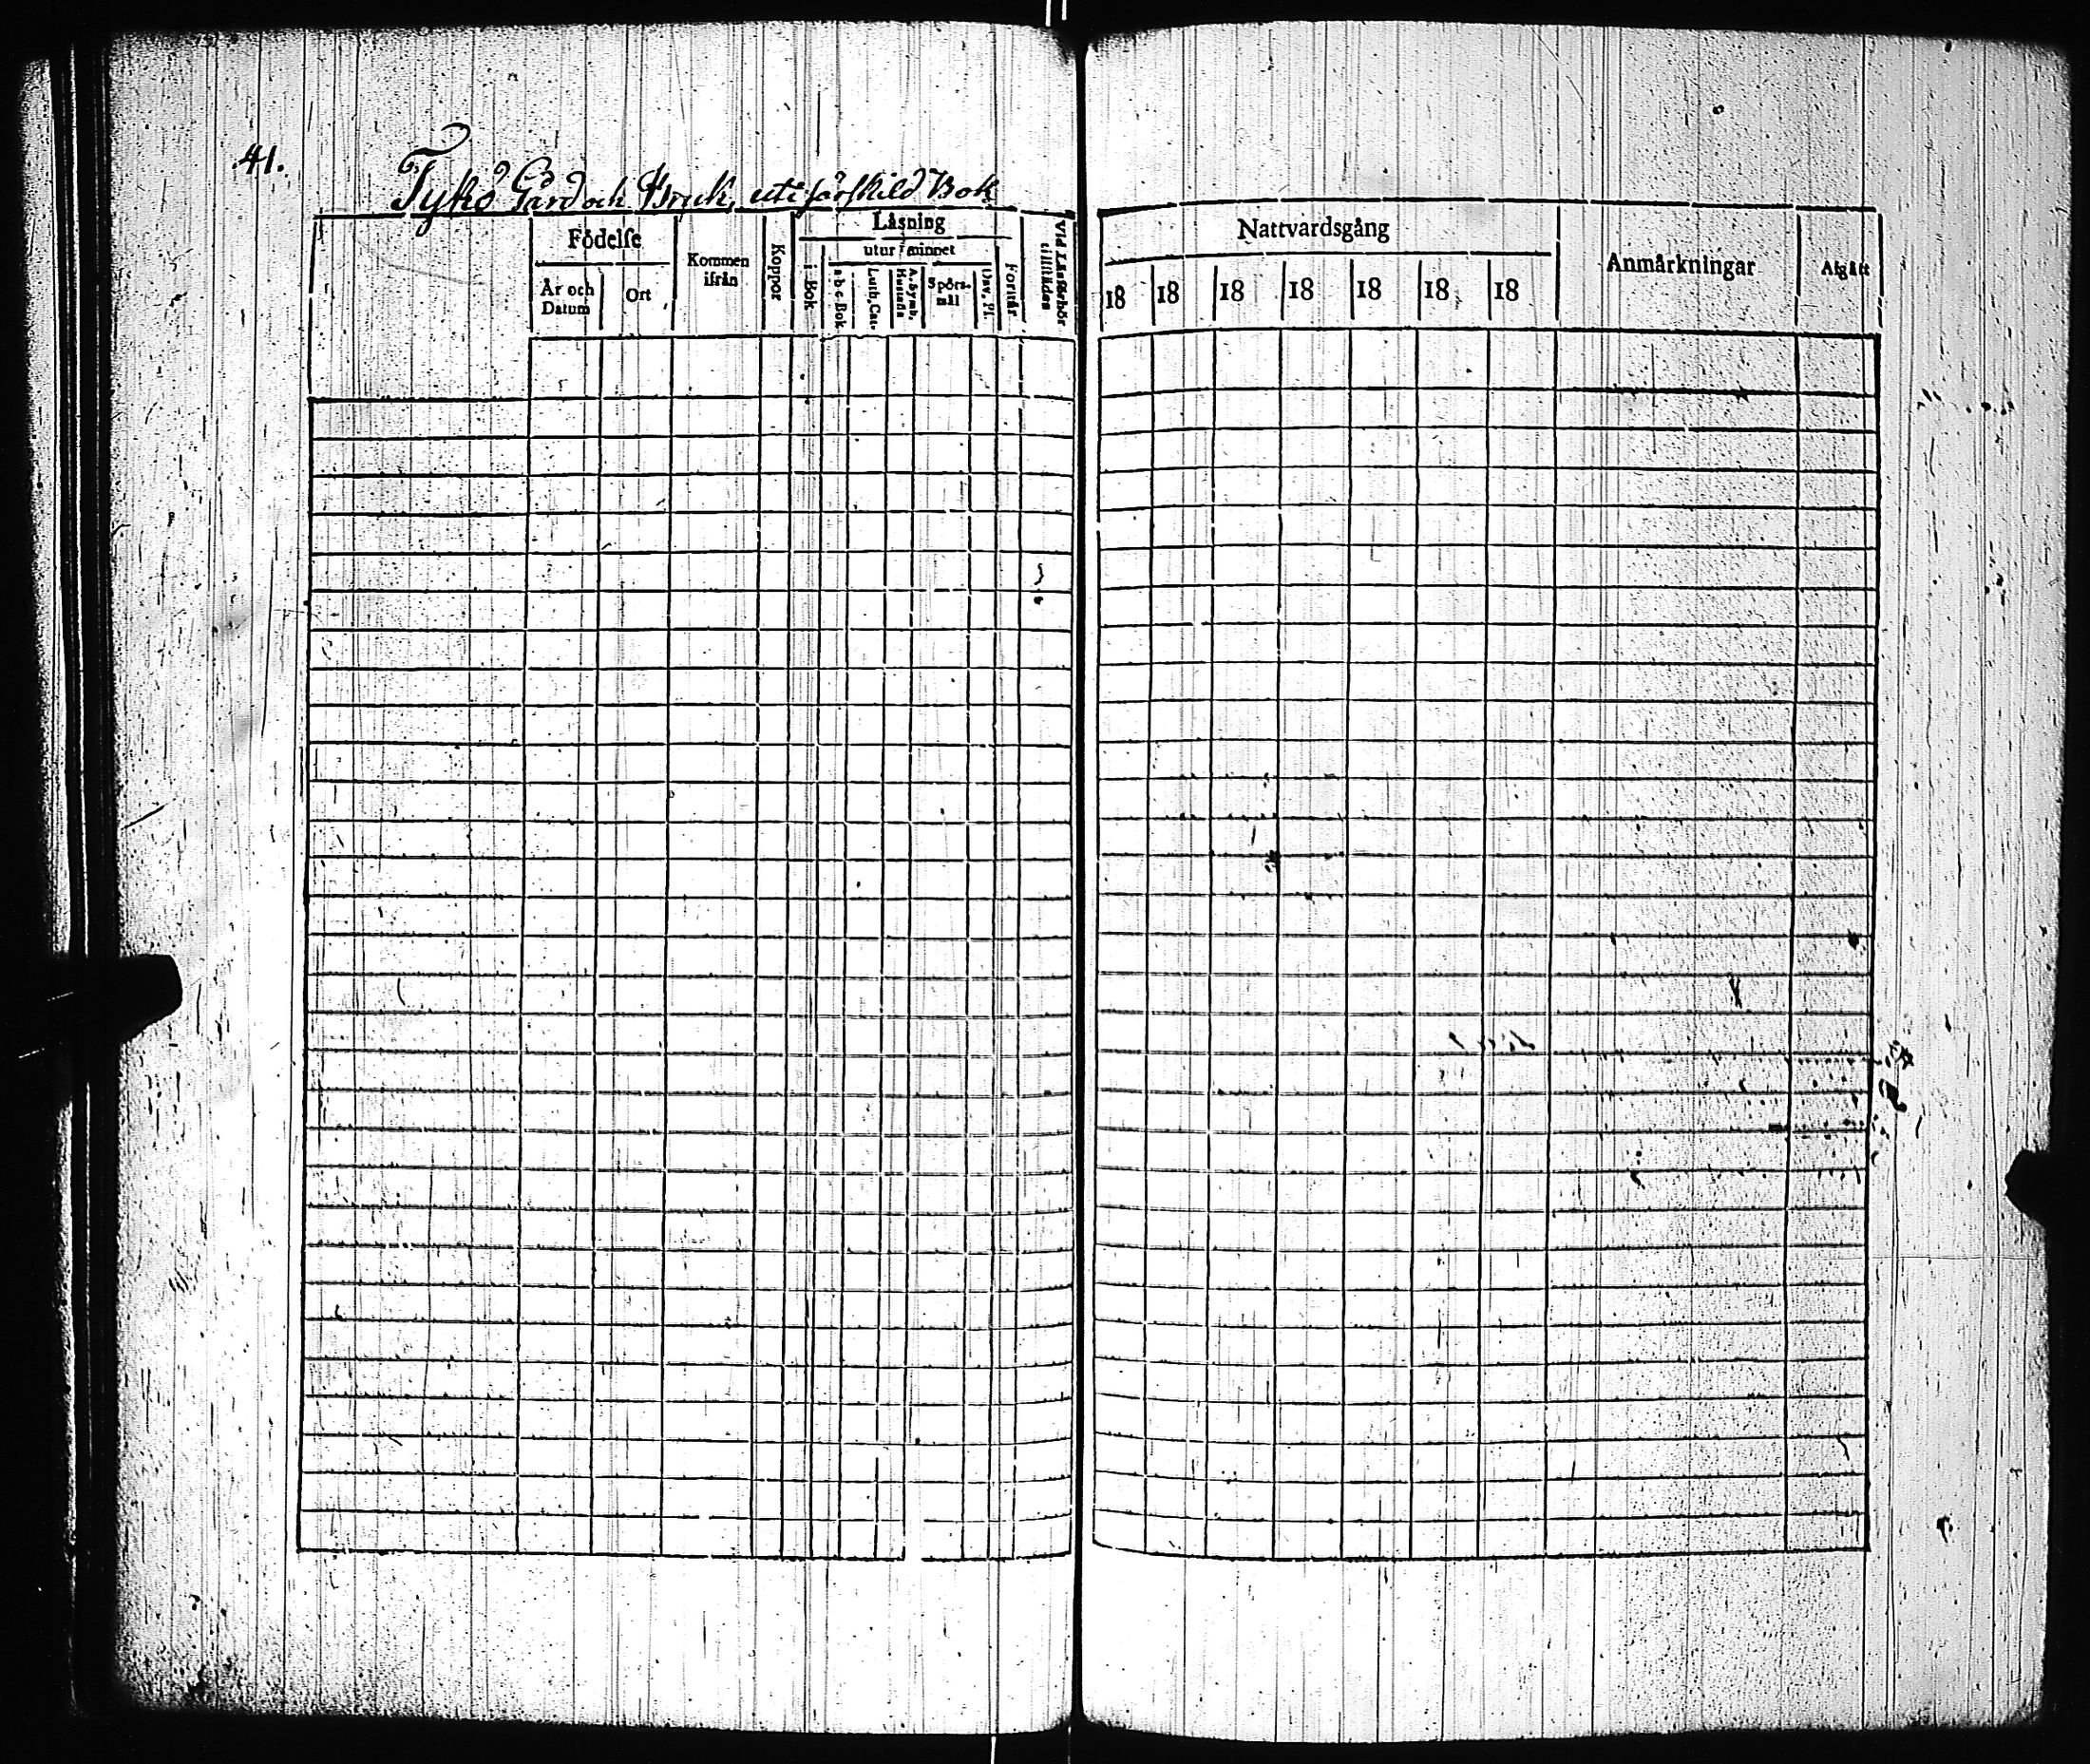 41.
Tykö Gård och Bruk, uti särskild Bok
Födelse
År och
Datum
Ort
Kommen
ifrån
Koppor
Läsning
i Bok
utur minnet
a b c Bok
Luth. Cat.
A. Symb.
Hustafla
Spörs-
mål
Dav. Ps.
Förstår
Vid Läsförhör
tillstädes
Nattvardsgång
18 18 18 18 18 18 18
Anmärkningar
Afgått